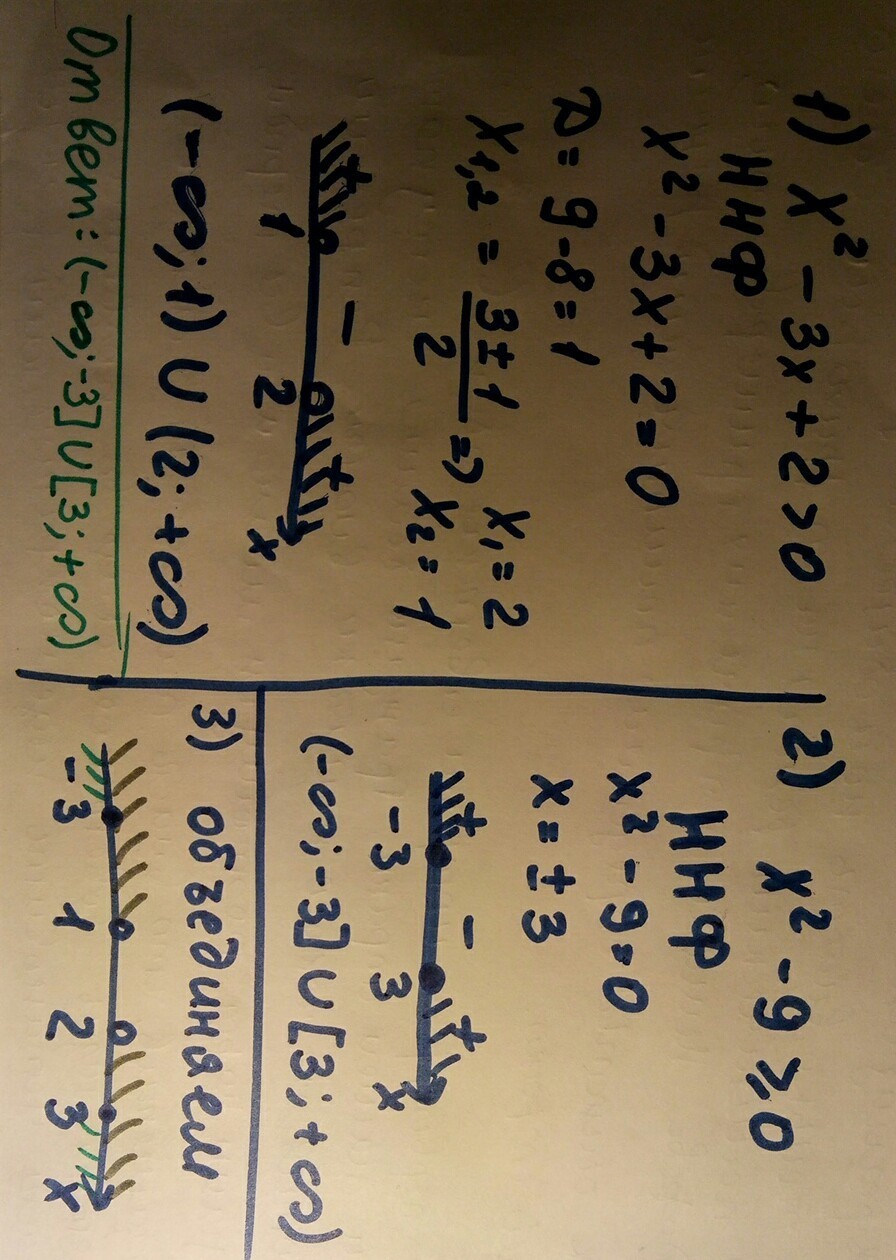 1) x² - 3x + 2 > 0
ННФ
x² - 3x + 2 = 0
D = 9 - 8 = 1
x₁,₂ = (3 ± 1)/2 => x₁ = 2
x₂ = 1
+ - +
1 2 x
(-∞; 1) ∪ (2; +∞)
Ответ: (-∞; -3] ∪ [3; +∞)
2) x² - 9 ⩾ 0
ННФ
x² - 9 = 0
x = ± 3
+ - +
-3 3 x
(-∞; -3] ∪ [3; +∞)
3) объединяем
-3 1 2 3 x